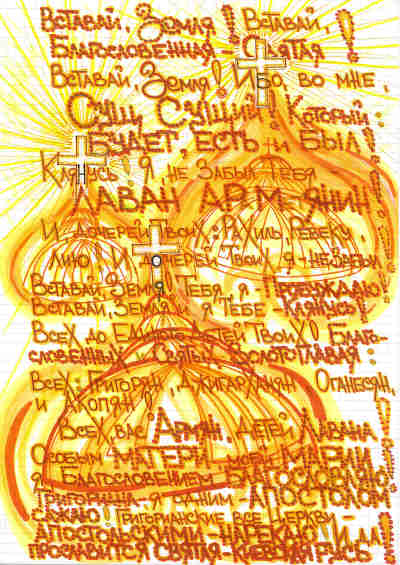 Вставай, Земля! Вставай,
Благословенная - Святая !
Вставай, Земля! Ибо, во мне,
Сущ, Сущий! Который:
Будет, есть и был!
Клянусь Я, не Забыл Тебя
Лаван Арметянин
И дочерей Твоих: Рахиль, Ревеку,
Лию! И дочерей Твоих Я - незабыл
Вставай, Земля! Тебя, я - Пробуждаю!
Вставай, Земля! Я Тебе - Клянусь!
Всех до Единого детей Твоих! Благо-
словенных и Святых, Золотоглавая:
Всех: Григорян, Джигарханян Оганесян,
и Акопян!
Всех, вас Армян, детей Лавана
Особым Матери - моей Марии
я Благословением Благословляю
Григориана - я за ним - Апостолом
Слжаю! Григорианские все Церкви -
Апостольскими - Нарекаю! И да!
Прославится Святая - Киевская Русь